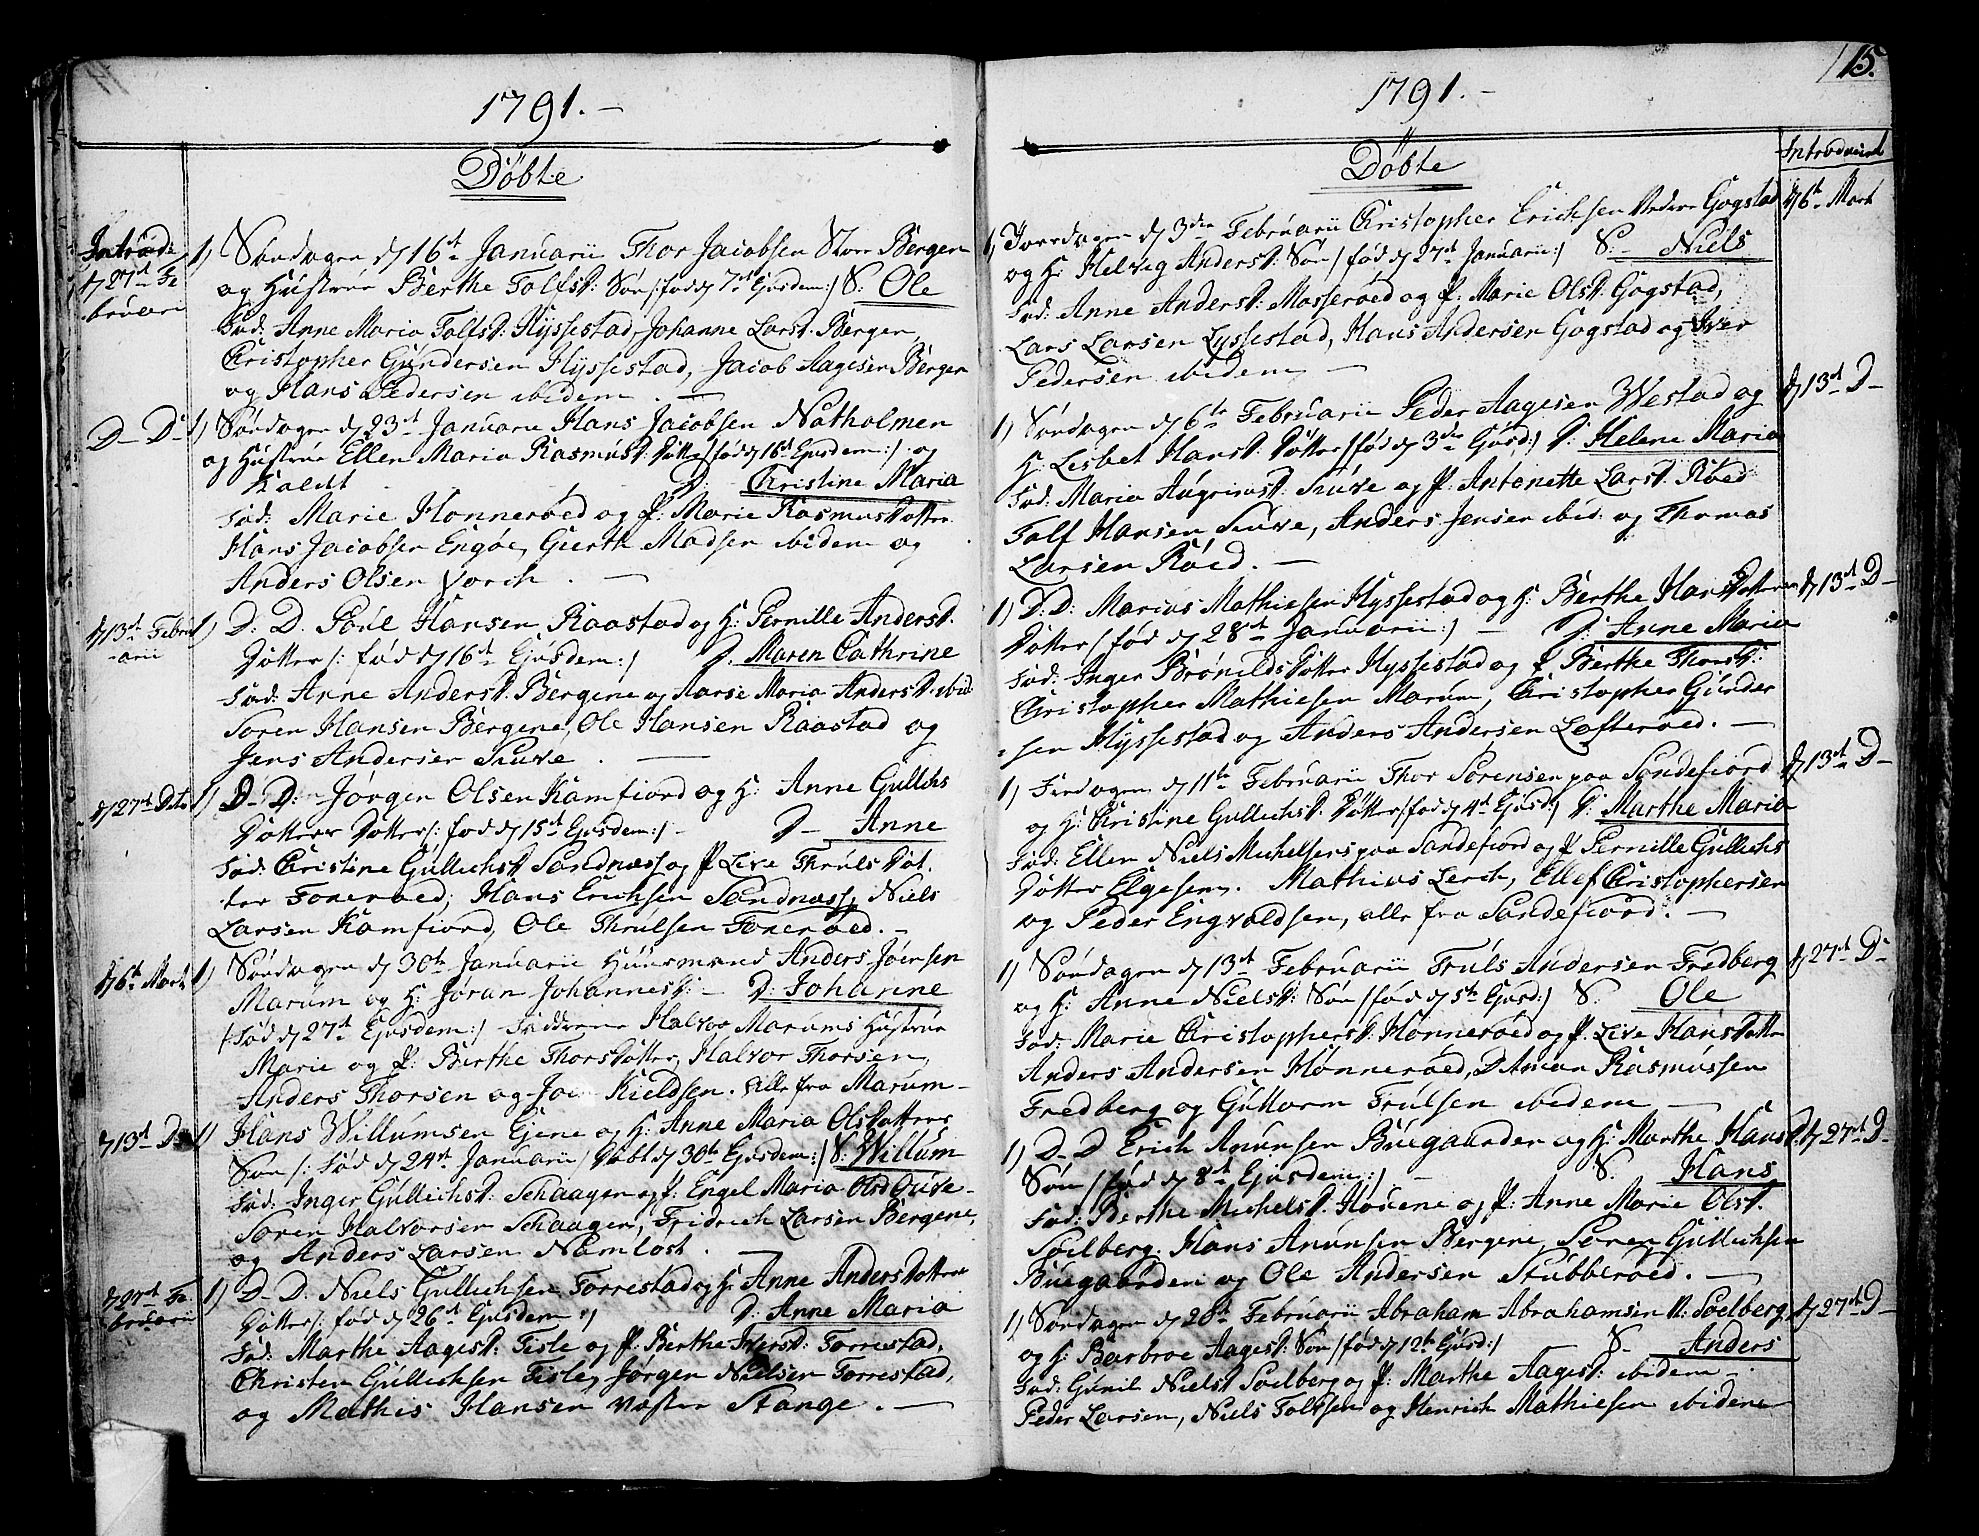 1791.-
Döbte
Introd:
d 27de Fe
bruari
1) Söndagen d 16de Januarii Thor Jacobsen Store Bergen
og Hustrue Berthe Tolfsd: Søn /: föd d 7de Ejusdem :/ S: Ole
Fad: Anne Maria Tolfsd: Hyssestad, Johanne Larsd: Bergen,
Christopher Gundersen Hyssestad, Jacob Aagesen Bergen
og Hans Pedersen ibidem . —
D- Do
1) Söndagen d 23de Januarii Hans Jacobsen Natholmen
og Hustrue Ellen Maria Rasmusd: Dötter /: föd d 16de Ejusdem :/ og
kaldt D: Christine Maria
Fad: Marie Hönneröed og P: Marie Rasmusdötter
Hans Jacobsen Engöe, Gierth Madsen ibidem og
Anders Olsen Vorch . —
d 13de Febru
arii
1) D. D. Poul Hansen Raastad og H: Pernille Andersd.
Dötter /: föd d 16de Ejusdem :/ D. Maren Cathrine
Fad: Anne Andersd. Bergene og Aarse Maria Andersd. ibid
Soren Hansen Bergene, Ole Hansen Raastad og
Jens Andersen Skuve . —
d 27de Dito
1) D- D: Jörgen Olsen Kamfiord og H: Anne Gullichs
Dötter Dötter /: föd d 15de Ejusdem :/ - D- Anne
Fad: Christine Gullichsd. Sandnæss og P. Live Thrulsdöt
ter Foxeröed, Hans Erichsen Sandnæss, Niels
Larsen Kamfiord, Ole Thrulsen Foxeröed. -
d 6te Marti
1) Söndagen d 30te Januarii Huusmand Anders Jöensen
Marum og H: Jöran Johannesd: - D: Johanne
/: Föd d 27de Ejusdem :/ Fadderne Halvor Marums Hustrue
Marie og P: Berthe Thorsdötter, Halvor Thorsen,
Anders Thorsen og Joen Kieldsen. Alle fra Marum-
d 13de Do
1) Hans Willumsen Gjene og H: Anne Maria Olsdotter
Søn /: Föd d 24de Januarii, Döbt d 30te Ejusdem :/ S: Willum
Fad: Inger Gullichsd: Schaagen og P: Engel Maria Olsd
Soren Halvorsen Schaagen, Fridrich Larsen Bergene,
og Anders Larsen Namlösk . —
d 27de Fe
bruarii
1) D- D. Niels Gullichsen Torrestad og H: Anne Andersdötter
Dötter /: föd d 26de Ejusdem :/ D: Anne Maria
Fad: Marthe Aagesd: Fisle og P: Berthe Iversd: Torrestad,
Christen Gullichsen Fisle, Jörgen Nielsen Torrestad,
og Mathis Hansen Væster Stange . —
1791.-
15.
Döbte
Introducered
d 6te Mart
1) Torsdagen d 3die Februarii Christopher Erichsen Nedere Gogstad
og H: Helvig Andersd: Søn /: föd d 27de Januarii :/ S:- Niels
Fad: Anne Andersd: Masseröed og P: Marie Olsd. Gogstad,
Lars Larsen Lyssestad, Hans Andersen Gogstad og Iver
Pedersen ibidem —
d 13de D-
1) Söndagen d 6te Februarii Peder Aagesen Westad og
H: Lisbet Hansd: Dötter /: föd d 3die Ejusd :/ D: Helene Maria
Fad: Maria Augrimsd: Skuve og P. Antonette Larsd. Röed
Tolf Hansen Skuve, Anders Jensen ibid: og Thomas
Larsen Röed. —
d 13de D-
1) D. D: Marius Mathiesen Hyssestad og H: Berthe Hansdötter
Dötter /: föd d 28de Januarii :/ — D: Anne Maria
Fad: Inger Brönildsdötter Hyssestad og P Berthe Thorsd:
Christopher Mathiesen Marum, Christopher Gunder
sen Hyssestad og Anders Andersen Lofteröed. —
d 13de D-
1) Fredagen d 11te Februarii Thor Sörensen paa Sandefiord
og H: Christine Gullichsd. Dötter /: föd d 4de Ejusd :/ D: Marthe Maria
Fad: Ellen Niels Michelsens paa Sandefiord og P Pernille Gullichs
Dötter Elgesem. Mathias Lerch, Ellef Christophersen
og Peder Engvoldsen, alle fra Sandefiord. —
d 27de Do
1) Söndagen d 13de Februarii Truls Andersen Fredberg
og H: Anne Nielsd: Søn /: föd d 5te Ejusd :/ S. Ole
Fad: Marie Christophersd. Hönneröed og P. Live Hansdötter
Anders Andersen Hönneröed, Daniel Rasmussen
Fredberg og Guttorm Trulsen ibidem —
d 27de D-
1) D- D Erich Anunsen Buegaarden og H: Marthe Hansd
Søn /: föd d 8de Ejusdem :/ - S. Hans
Fad: Berthe Michelsd. Houene og P: Anne Marie Olsd.
Söelberg. Hans Anunsen Bergene, Sören Gullichsen
Buegaarden og Ole Andersen Stubberöed. —
d 27de D-
1) Söndagen d 20de Februarii Abraham Abrahamsen N: Söelberg
og H: Barbroe Aagesd: Søn /: föd d 12te Ejusd :/ S- Anders
Fad: Gunil Nielsd Söelberg og P: Marthe Aagesd: ibidem -
Peder Larsen, Niels Tolfsen og Henrich Mathiesen ibidem